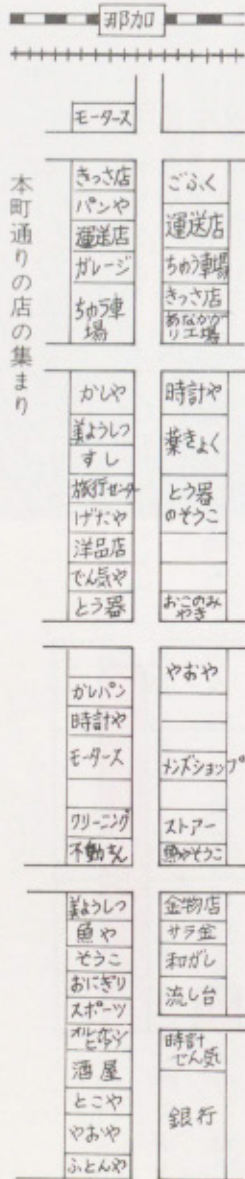 那加
本町通りの店の集まり
モータース
きっさ店
パンや
運送店
ガレージ
ちゅう車
場
ごふく
運送店
ちゅう車場
きっさ店
あなかが
り工場
かしや
美ようしつ
すし
旅行センター
げたや
洋品店
でん気や
とう器
時計や
薬きょく
とう器
のそうこ
おこのみ
やき
ガレパン
時計や
モータース
クリーニング
不動さん
やおや
メンズショップ
ストアー
魚やそうこ
美ようしつ
魚や
そうこ
おにぎり
スポーツ
酒屋
とこや
やおや
ふとんや
金物店
サラ金
和がし
流し台
時計
でん気
銀行